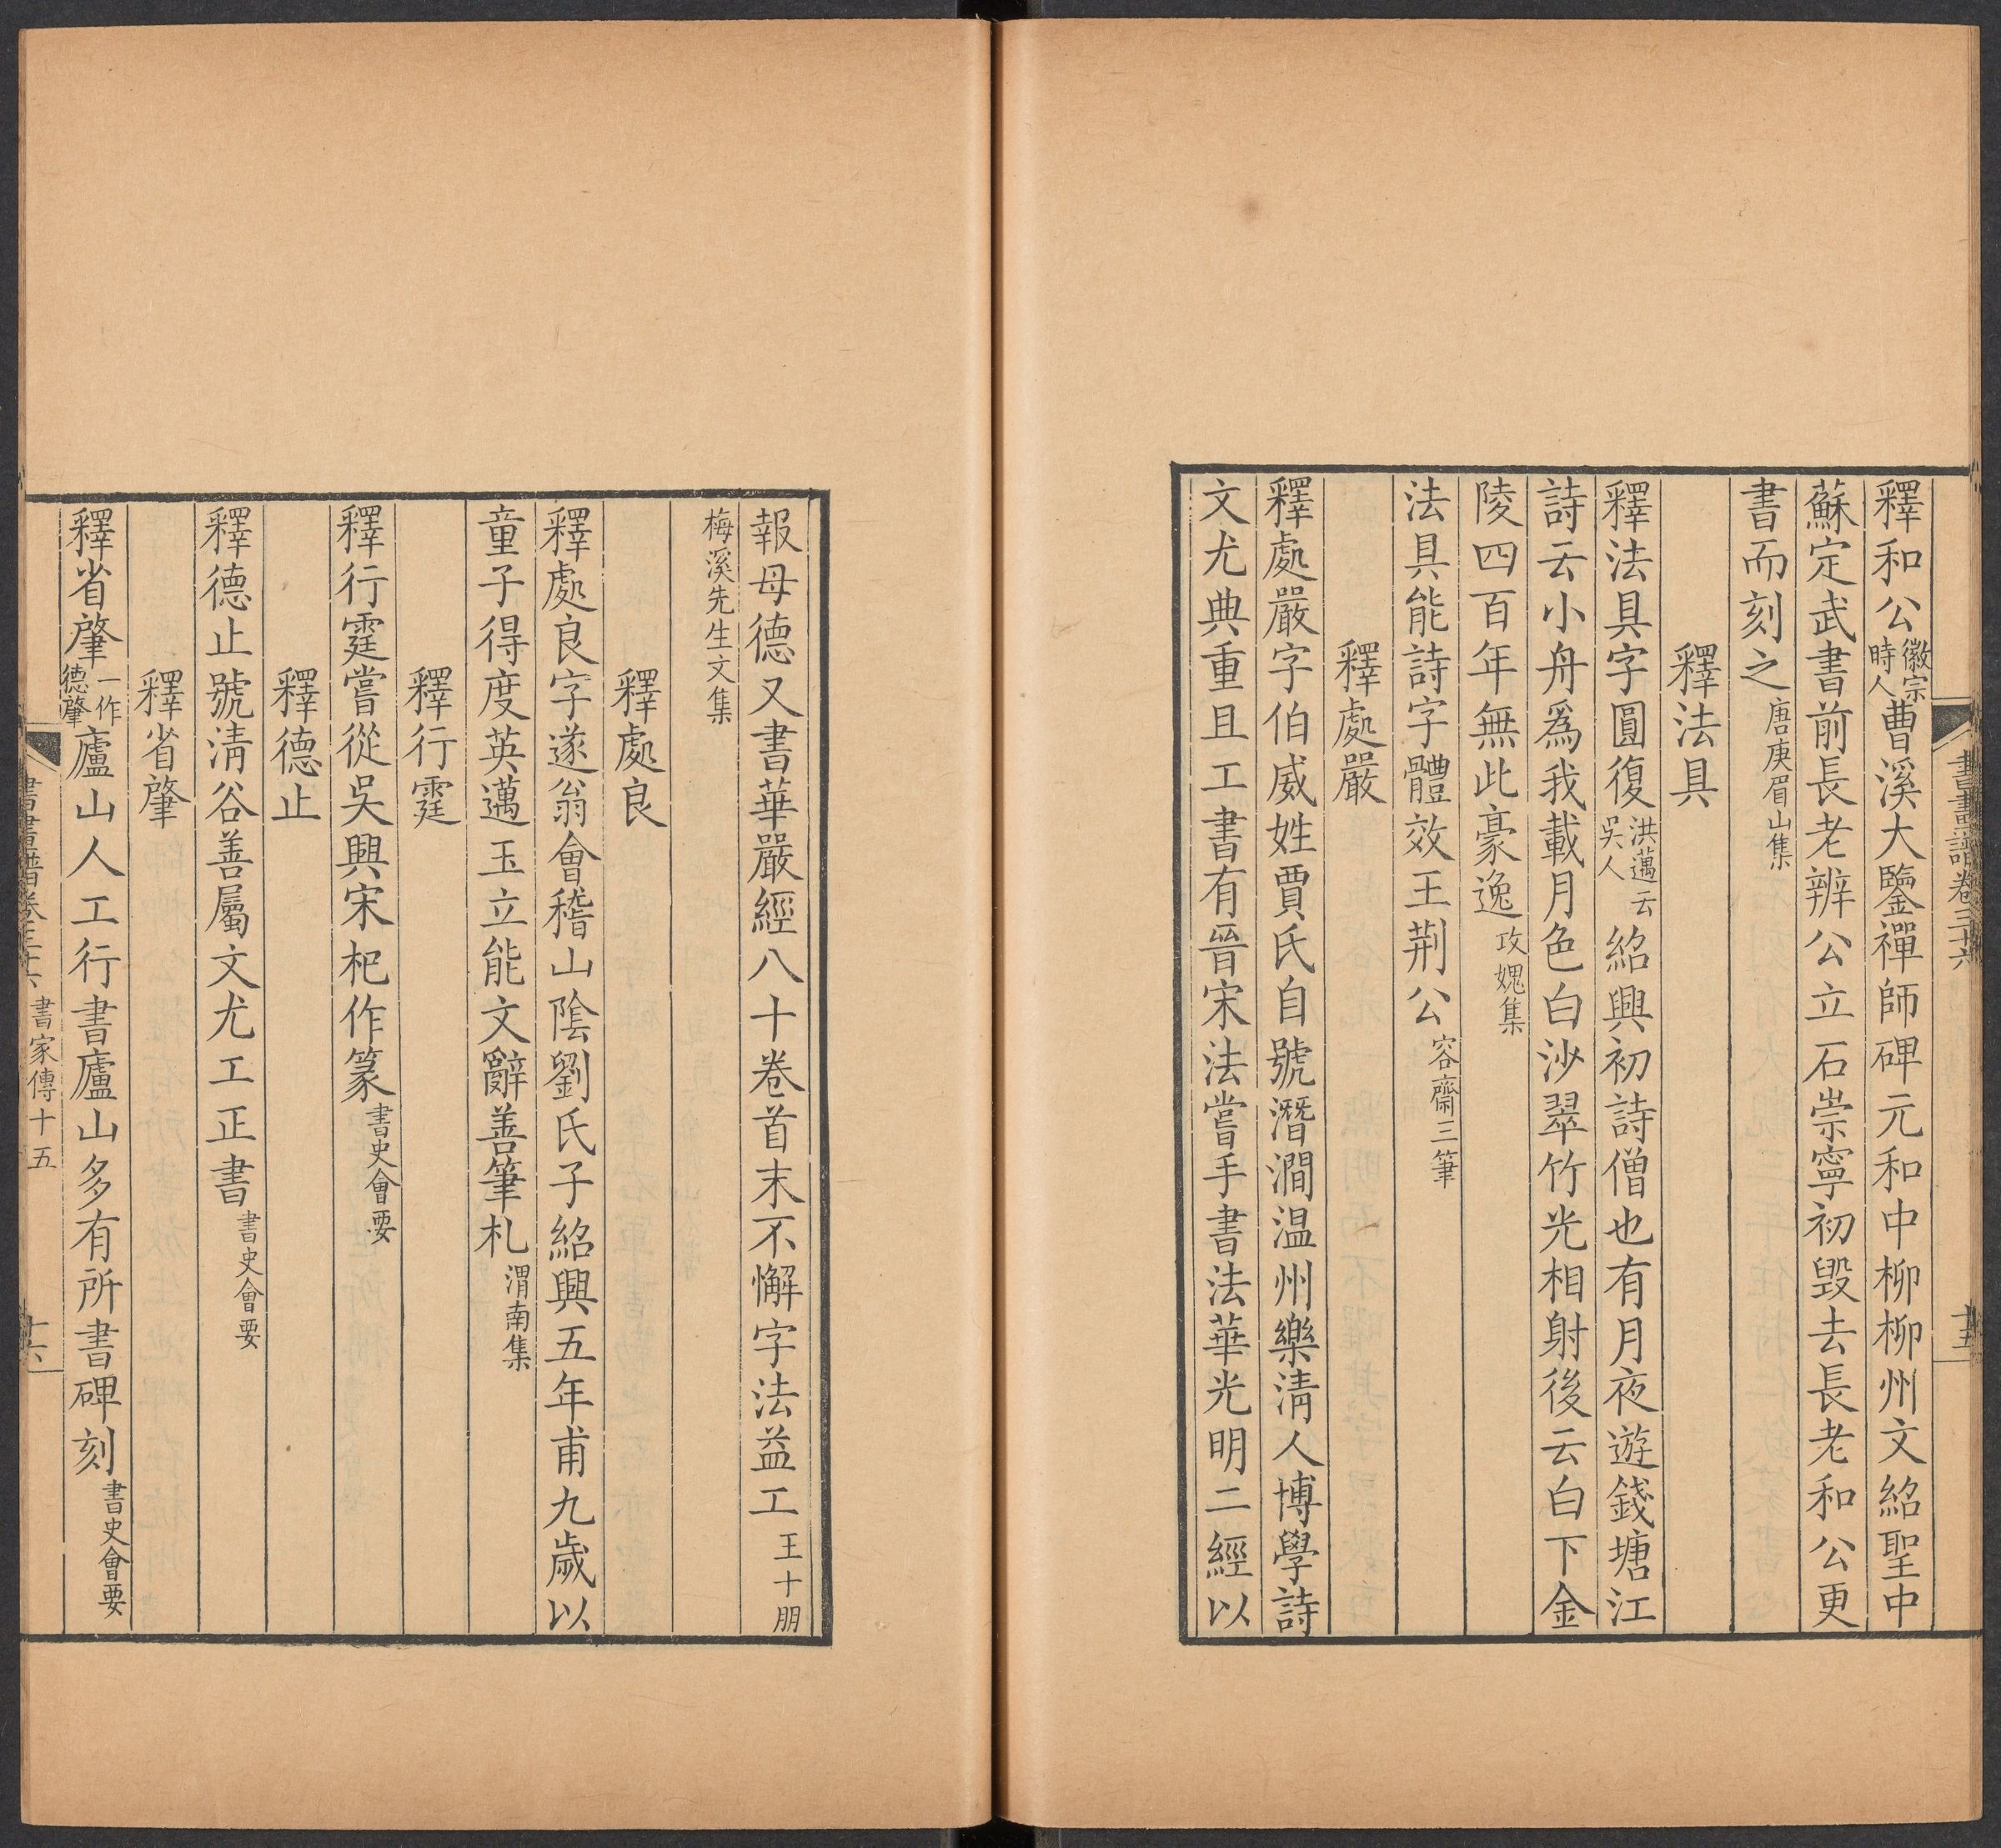 書畫譜卷三十六
十五
釋和公徽宗時人曹溪大鑒禪師碑元和中柳柳州文紹聖中
蘇定武書前長老辨公立石崇寧初毀去長老和公更
書而刻之唐庚眉山集
釋法具
釋法具字圓復洪邁云吳人紹興初詩僧也有月夜遊錢塘江
詩云小舟爲我載月色白沙翠竹光相射後云白下金
陵四百年無此豪逸攻媿集
法具能詩字體效王荆公容齋三筆
釋處嚴
釋處嚴字伯威姓賈氏自號潛澗温州樂淸人博學詩
文尤典重且工書有晉宋法嘗手書法華光明二經以
報母德又書華嚴經八十卷首末不懈字法益工王十朋
梅溪先生文集
釋處良
釋處良字遂翁會稽山陰劉氏子紹興五年甫九歲以
童子得度英邁玉立能文辭善筆札渭南集
釋行霆
釋行霆嘗從吳興宋杞作篆書史會要
釋德止
釋德止號淸谷善屬文尤工正書書史會要
釋省肇
釋省肇一作德肇廬山人工行書廬山多有所書碑刻書史會要
書畫譜卷三十六 書家傳十五
十六